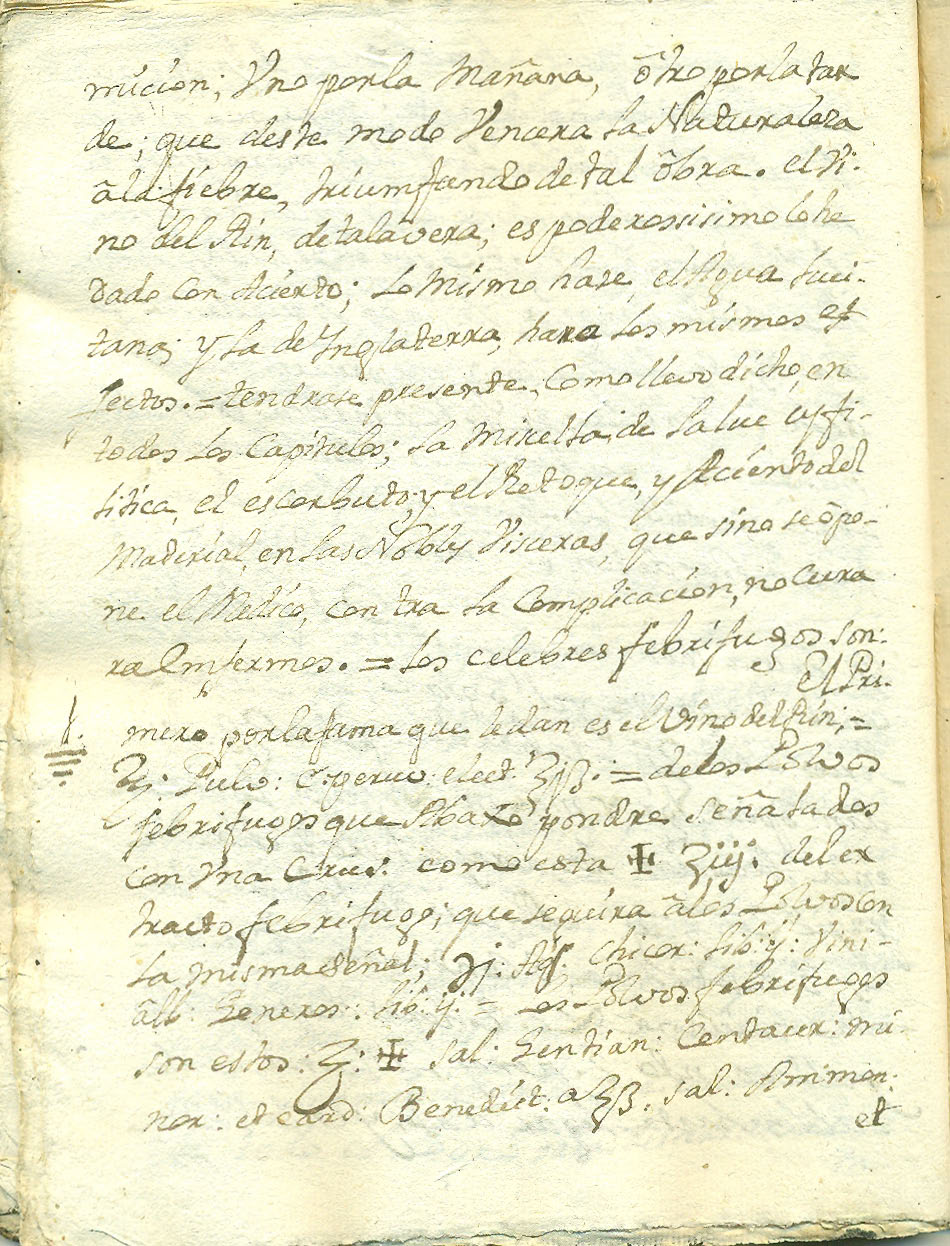 micion; Vno por la Mañana, ôtro por la tar
de; que deste modo Vencera la Naturaleza
âla fiebre, triumfando de tal ôbra. el Vi-
no del Rin, de talavera; es poderossisimo lo he
dado Con Acierto; Lo Mismo hase, el Agua Luci-
tana; y la de Ynglaterra, hara los mismos ef
fectos. = tendrase presente, Como llevo dicho, en
todos los Capitulos; la Miselta, de la lue cyfi-
litica, el escorbuto; y el Retoque, y Aciento del
Material, en las Nobles Visceras, que sino se ôpo-
ne el Medico, contra la Complicacion, no Cura
ra Enfermos. = los celebres febrifugos son:
El Pri-
1. mero por la fama que le dan es el Vino del Rin; =
Rx: Pulv: C: peruv: elect: ʒjß: = de los Polvos
febrifugos que Abaxo pondre señalados
con Vna Crus: como esta ✠ ʒiij: del ex
tracto febrifugo; que seguira âlos Polvos en
la misma señal; ʒj: Aq: Chicor: lib: ij: Vini-
âlb: Generos: lib: ij: = los Polvos febrifugos
son estos: Rx: ✠ sal: Gentian: Centaur: mi-
nor: et card: Benedict: a ʒß. sal: Ammon:
et